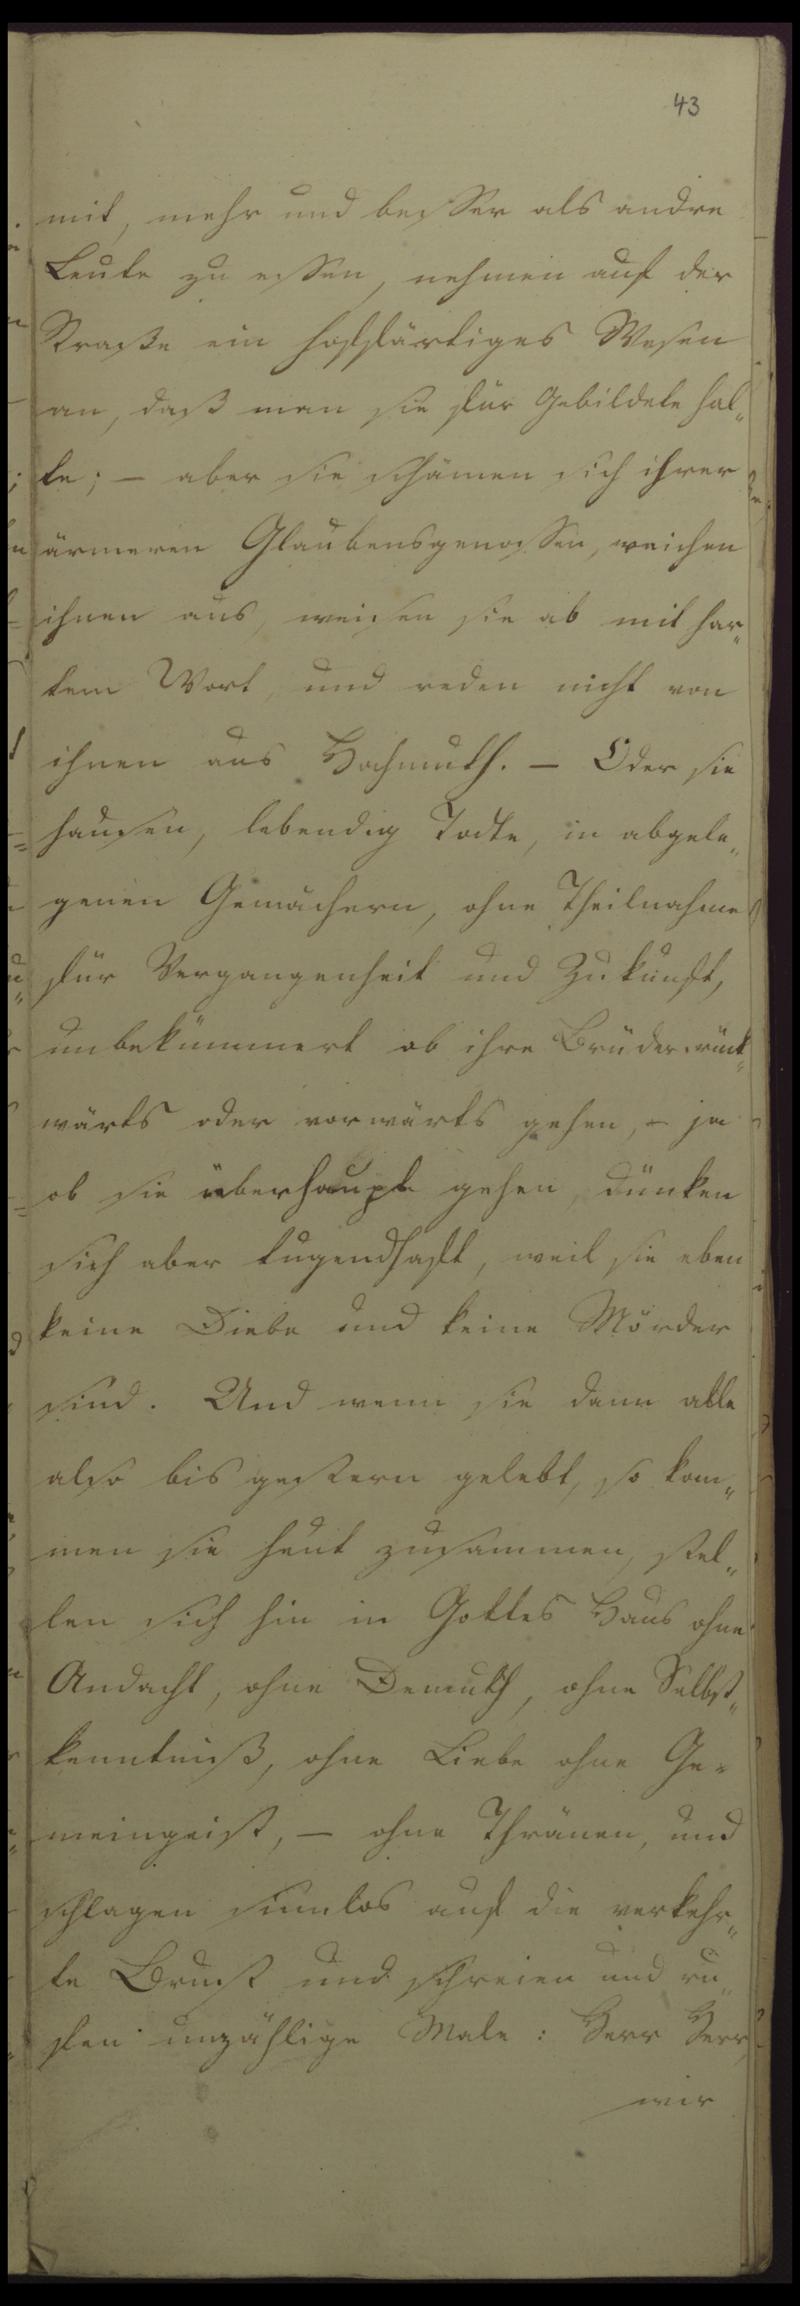 43
mit, mehr und besser als andre
Leute zu essen, nehmen auf der
Straße ein hoffärtiges Wesen
an, daß man sie für Gebildete hal„
te; — aber sie schämen sich ihrer
ärmeren Glaubensgenossen, weichen
ihnen aus, weisen sie ab mit har„
tem Wort, und reden nicht von
ihnen aus Hochmuth. — Oder sie
hausen, lebendig Todte, in abgele„
genen Gemächern, ohne Theilnahme
für Vergangenheit und Zukunft,
unbekümmert ob ihre Brüder rück„
wärts oder vorwärts gehen, — ja
ob sie überhaupt gehen, dünken
sich aber tugendhaft, weil sie eben
keine Diebe und keine Mörder
sind. Und wenn sie dann alle
also bis gestern gelebt, so kom„
men sie heut zusammen, stel„
len sich hin in Gottes Haus ohne
Andacht, ohne Demuth, ohne Selbst„
kenntniß, ohne Liebe ohne Ge-
meingeist, — ohne Thränen, und
schlagen sinnlos auf die verkehr„
te Brust und schreien und ru„
fen unzählige Male: Herr Herr,
wir